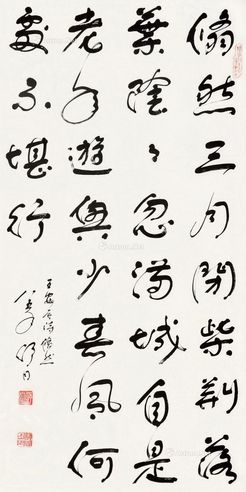 翛然三月閉柴荊落
葉陰々忽滿城自是
老來遊興少春風何
處不堪行
王安石詩翛然